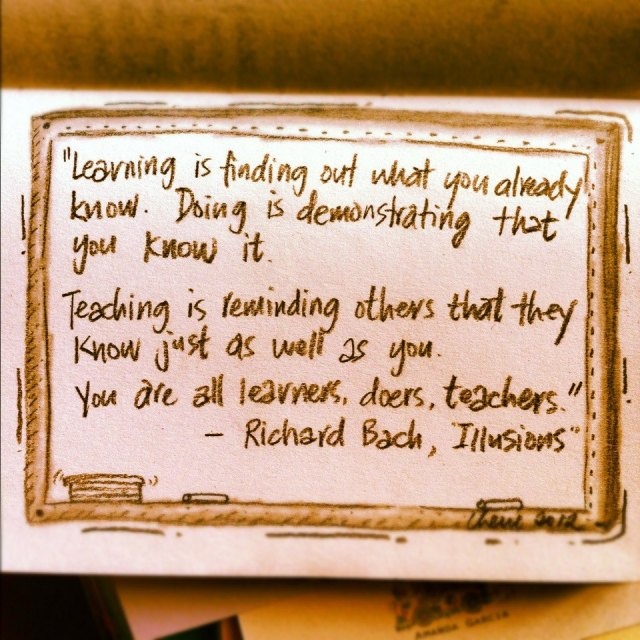 "Learning is finding out what you already
know. Doing is demonstrating that
you know it.
Teaching is reminding others that they
know just as well as you.
You are all learners, doers, teachers."
– Richard Bach, "Illusions"
2012
AMANDA GARCIA